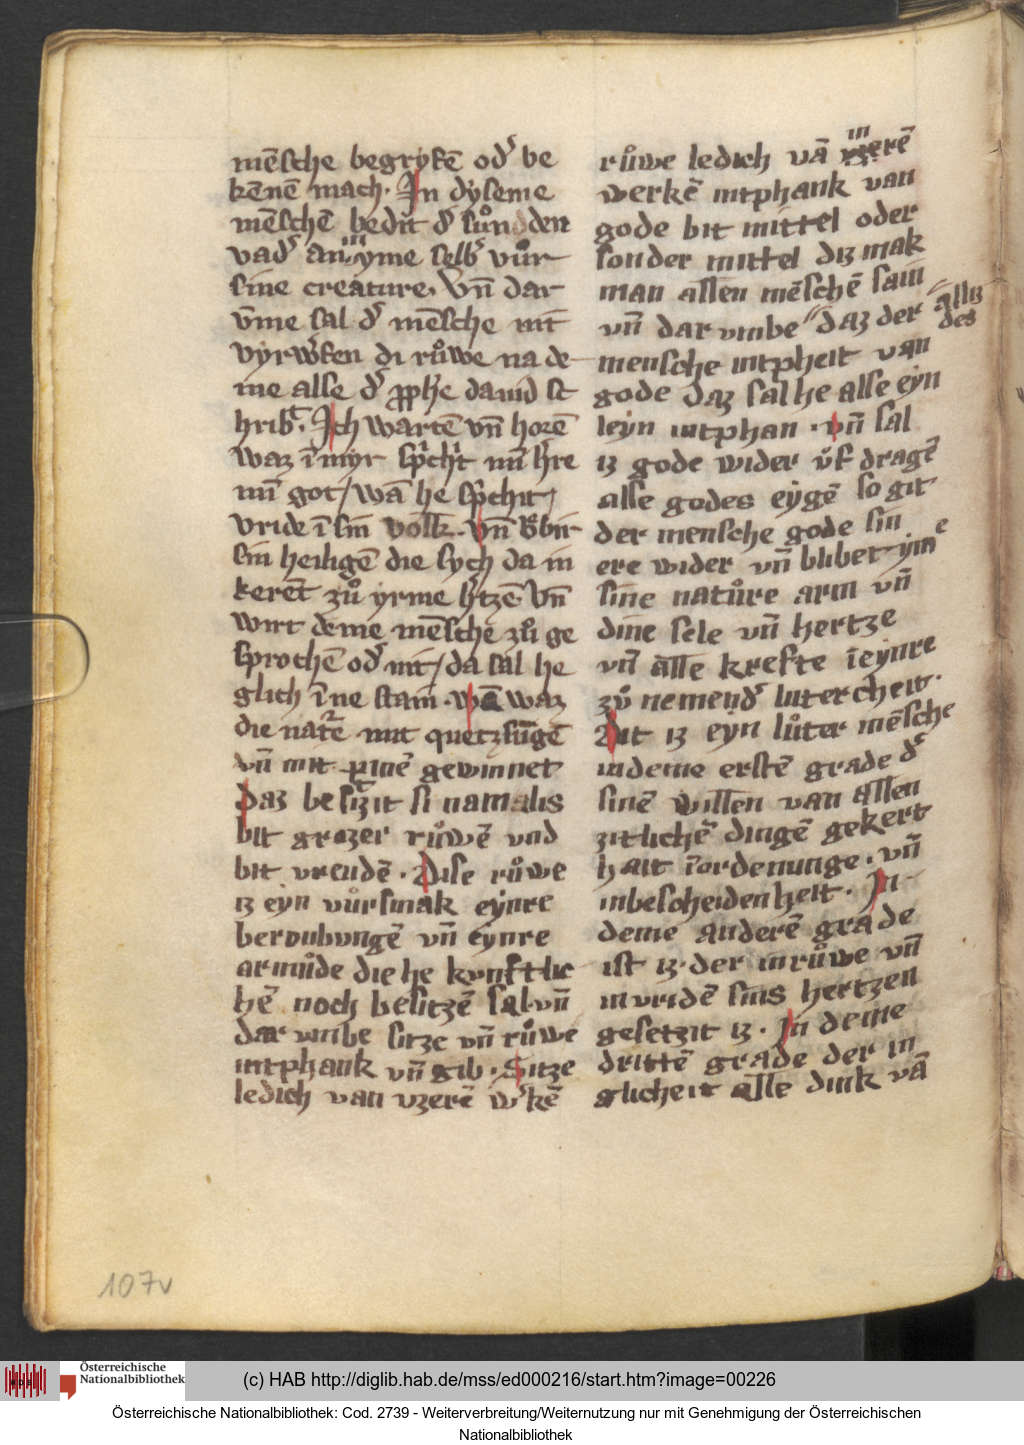 mēsche begryfē od᷎ be
kēnē mach. In dyseme
mēschē bedūt d᷎ sůndden
vad᷎ an yme selb᷎ vůr
sine creature. Vn̄ dar
v̄me sal d᷎ mēsche nit
vyrw᷎fen di růwe na de
me alse d᷎ ꝓph̄e dauid sc
hribt. Ich wartē vn̄ horē
waz ī myr sp᷎chit mī h᷎re
mī got / wā he sp᷎chit /
vride ī sin volk. Vn̄ vb᷎ir
sin heiligē die sych da in
kerent zů yrme h᷎tzē Vn̄
wirt deme mēsche zů ge
sprochē od᷎ nit / da sal he
glich īne stain. wā waz
die nat᷎e mit quetzsūgē
vn̄ mit pinē gewinnet
Daz besizzit si namalis
bit grozer růwē vnd
bit vreudē. Dise růwe
iz eyn vůrsmak eynre
beroubungē vn̄ eynre
armůde die he kunftlic
hē noch besitzē sal vn̄
dar vmbe sitze vn̄ růwe
intphank vn̄ gib. Sitze
ledich van vzerē w᷎kē
růwe ledich vā inrerē
werkē intphank van
gode bit mittel oder
sonder mittel diz mak
man allen mēschē sain
vn̄ dar vmbe // daz der // alliz
des
mensche intpheit van
gode daz sal he alse eyn
leyn intphan. vn̄ sal
iz gode wider v̊f dragē
alse godes eygē so git
der mensche gode sin
ere wider vn̄ blibet yme
sine natůre arm vn̄
dine sele vn̄ hertze
vn̄ alle krefte īeynre
zů nemend᷎ luterchеit.
Dit iz eyn lůter mēsche
in deme erstē grade d᷎
sinē willen van allen
zitlichē dingē gekert
hait īordenunge. vn̄
inbescheidenheit. In
deme anderē grade
ist iz der in růwe vn̄
in vridē sins hertzen
gesetzit iz. In deme
drittē grade der in
glicheit alle dink vā
107v
Österreichische
Nationalbibliothek
(c) HAB http://diglib.hab.de/mss/ed000216/start.htm?image=00226
Österreichische Nationalbibliothek: Cod. 2739 - Weiterverbreitung/Weiternutzung nur mit Genehmigung der Österreichischen
Nationalbibliothek